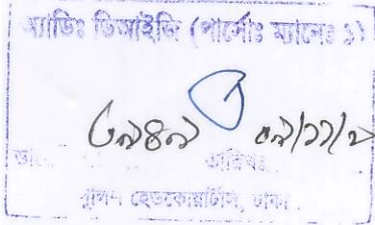 অ্যাডিঃ ডিআইজি (পার্সোঃ ম্যানেঃ ১)
৩৯৪৯ ০৯/১১/২
তারিখঃ
পুলিশ হেডকোয়ার্টার্স, ঢাকা।